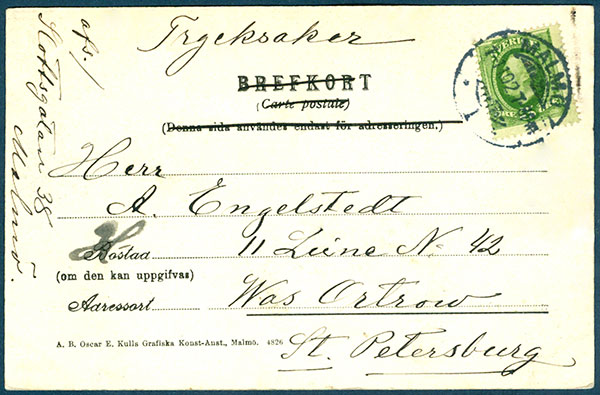 Trycksaker
BREFKORT
(Carte postale)
(Denna sida användes endast för adresseringen.)
Herr
A. Engelstedt
Bostad 11 Leine No 42
(om den kan uppgifvas)
Adressort Was Ortrow
St. Petersburg
A. B. Oscar E. Kulla Grafiska Konst-Anst., Malmö. 4826
afs./
38
Malmö.
MALMÖ